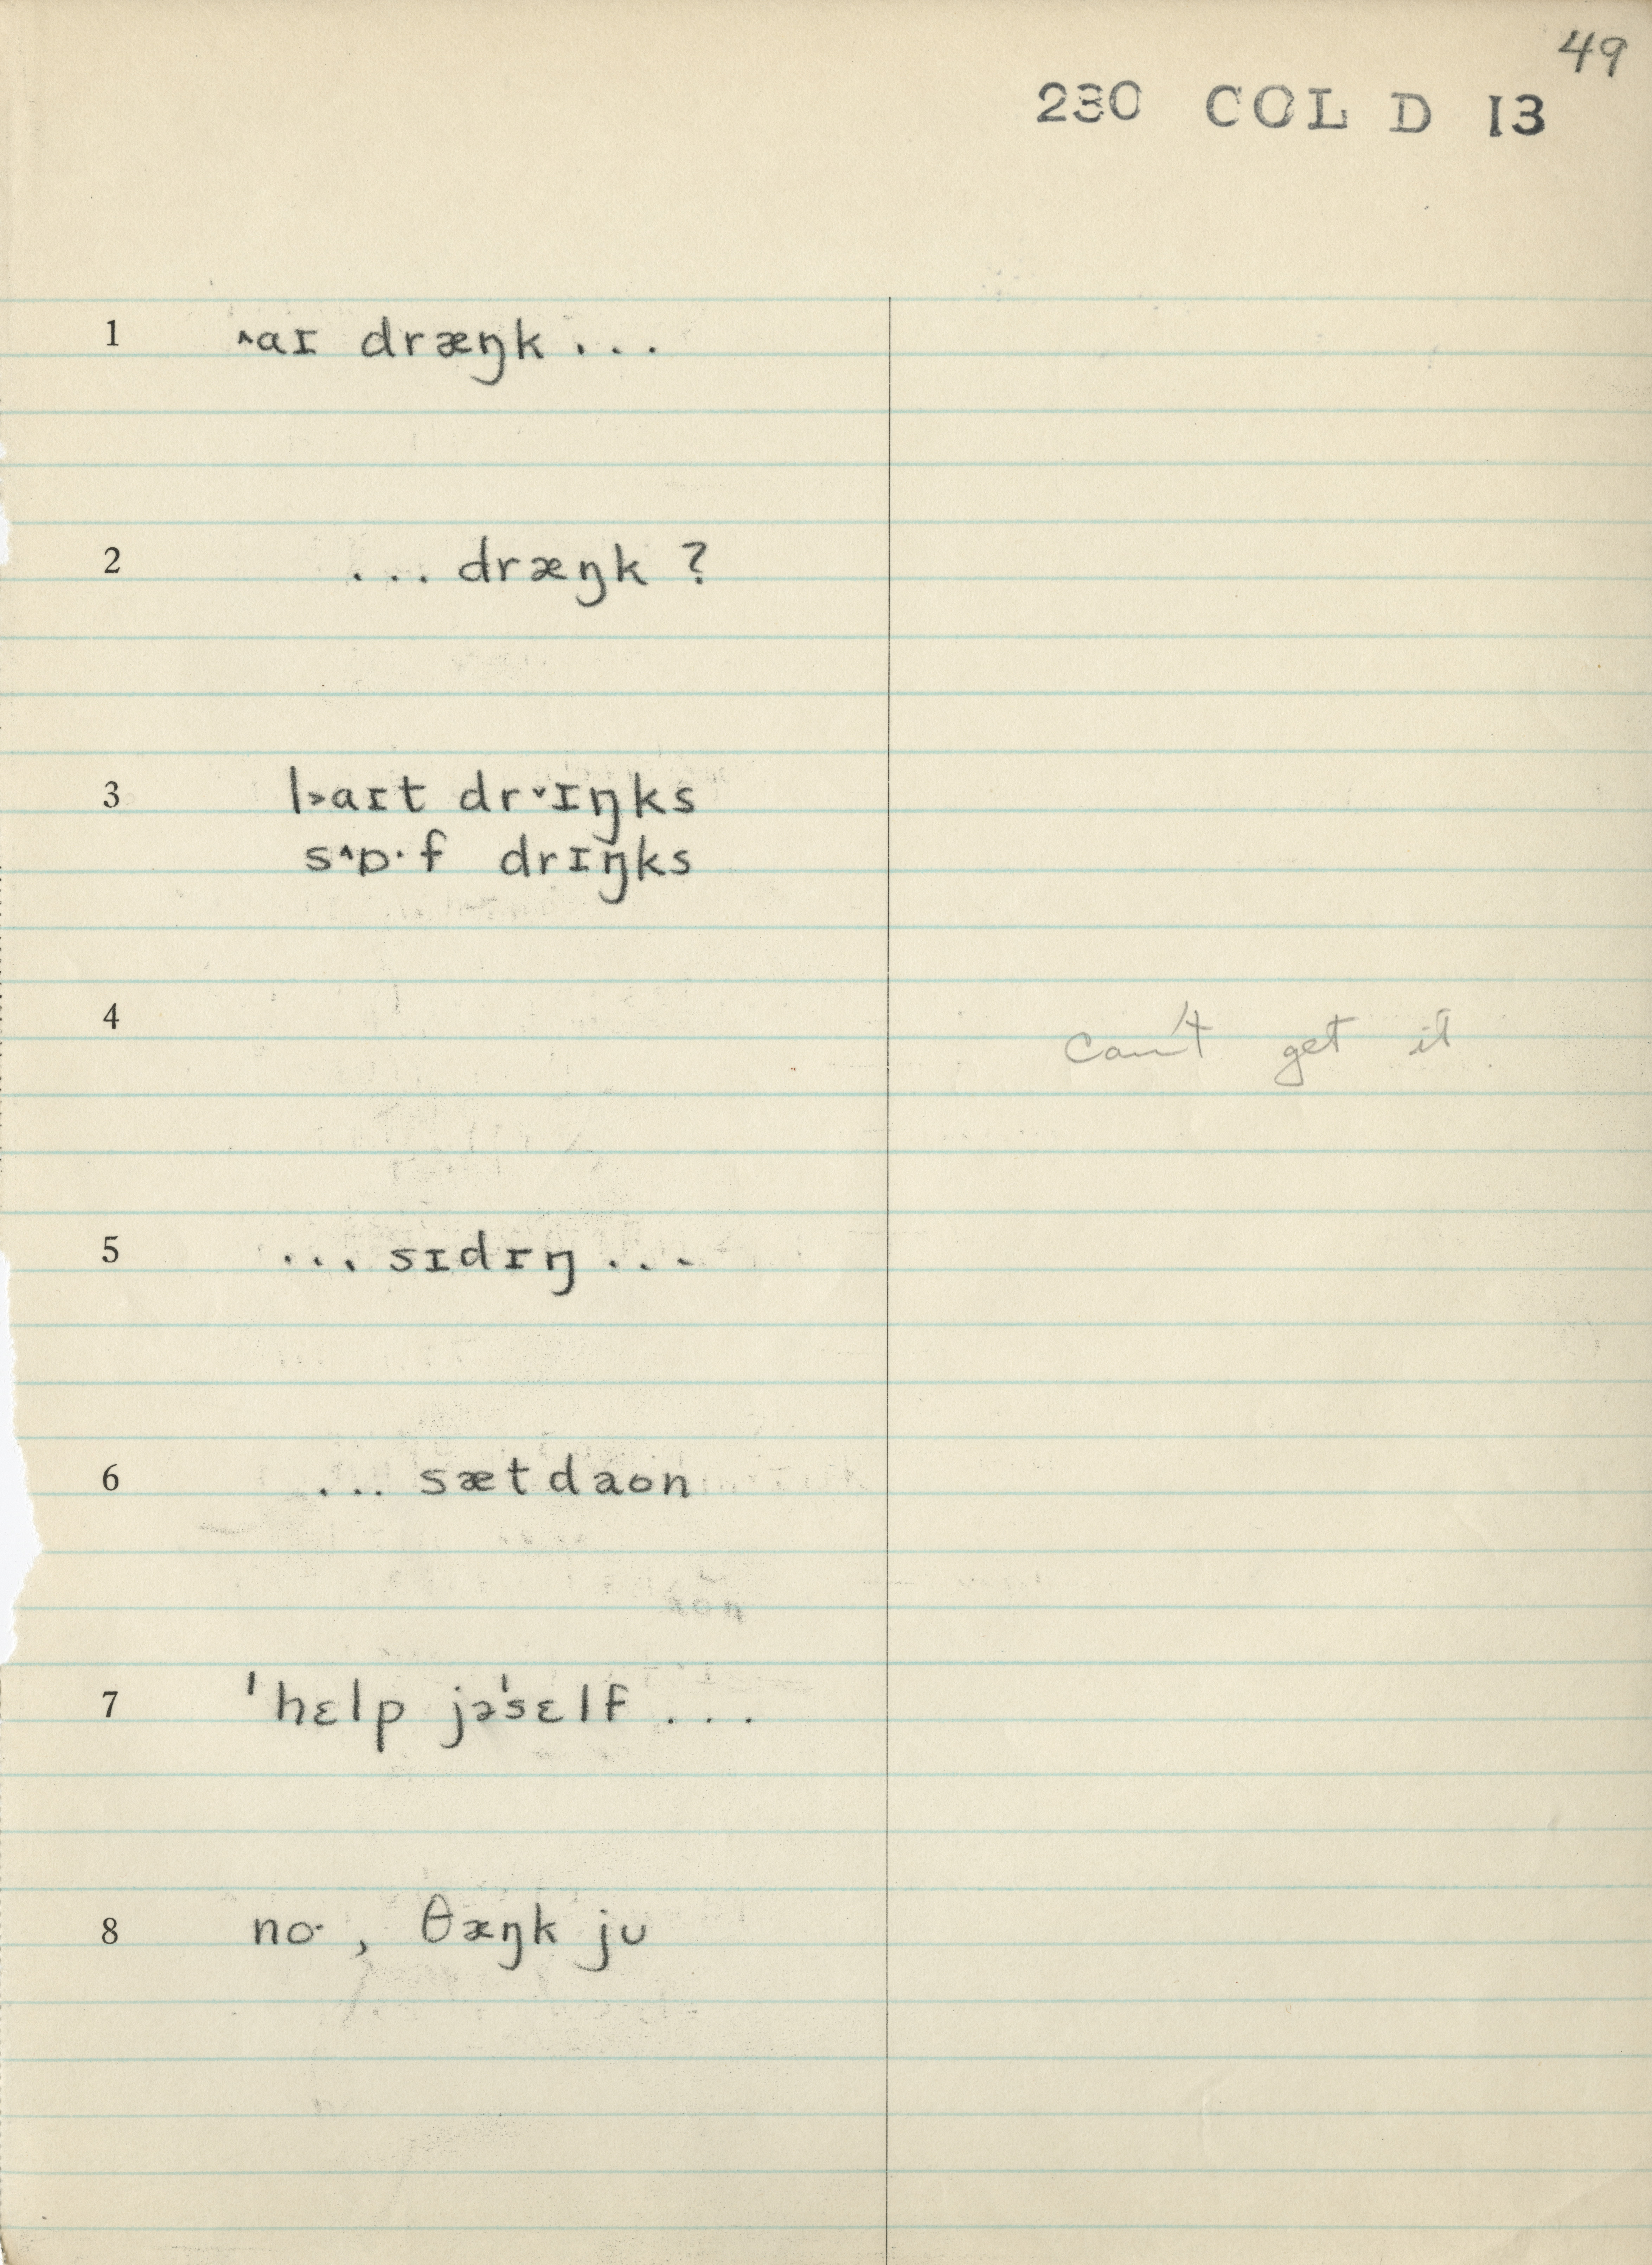 49
230 COL D 13
1 ˄aɪ dræŋk . . .
2 . . . dræŋk ?
3 l˃aɪt dr˅ɪŋks
s˄ɒ·f drɪŋks
4 can't get it
5 . . . sɪdɪŋ . . .
6 . . . sæt daon
7 ˈhɛlp jəˈsɛlf . . .
8 no· , θæŋk ju